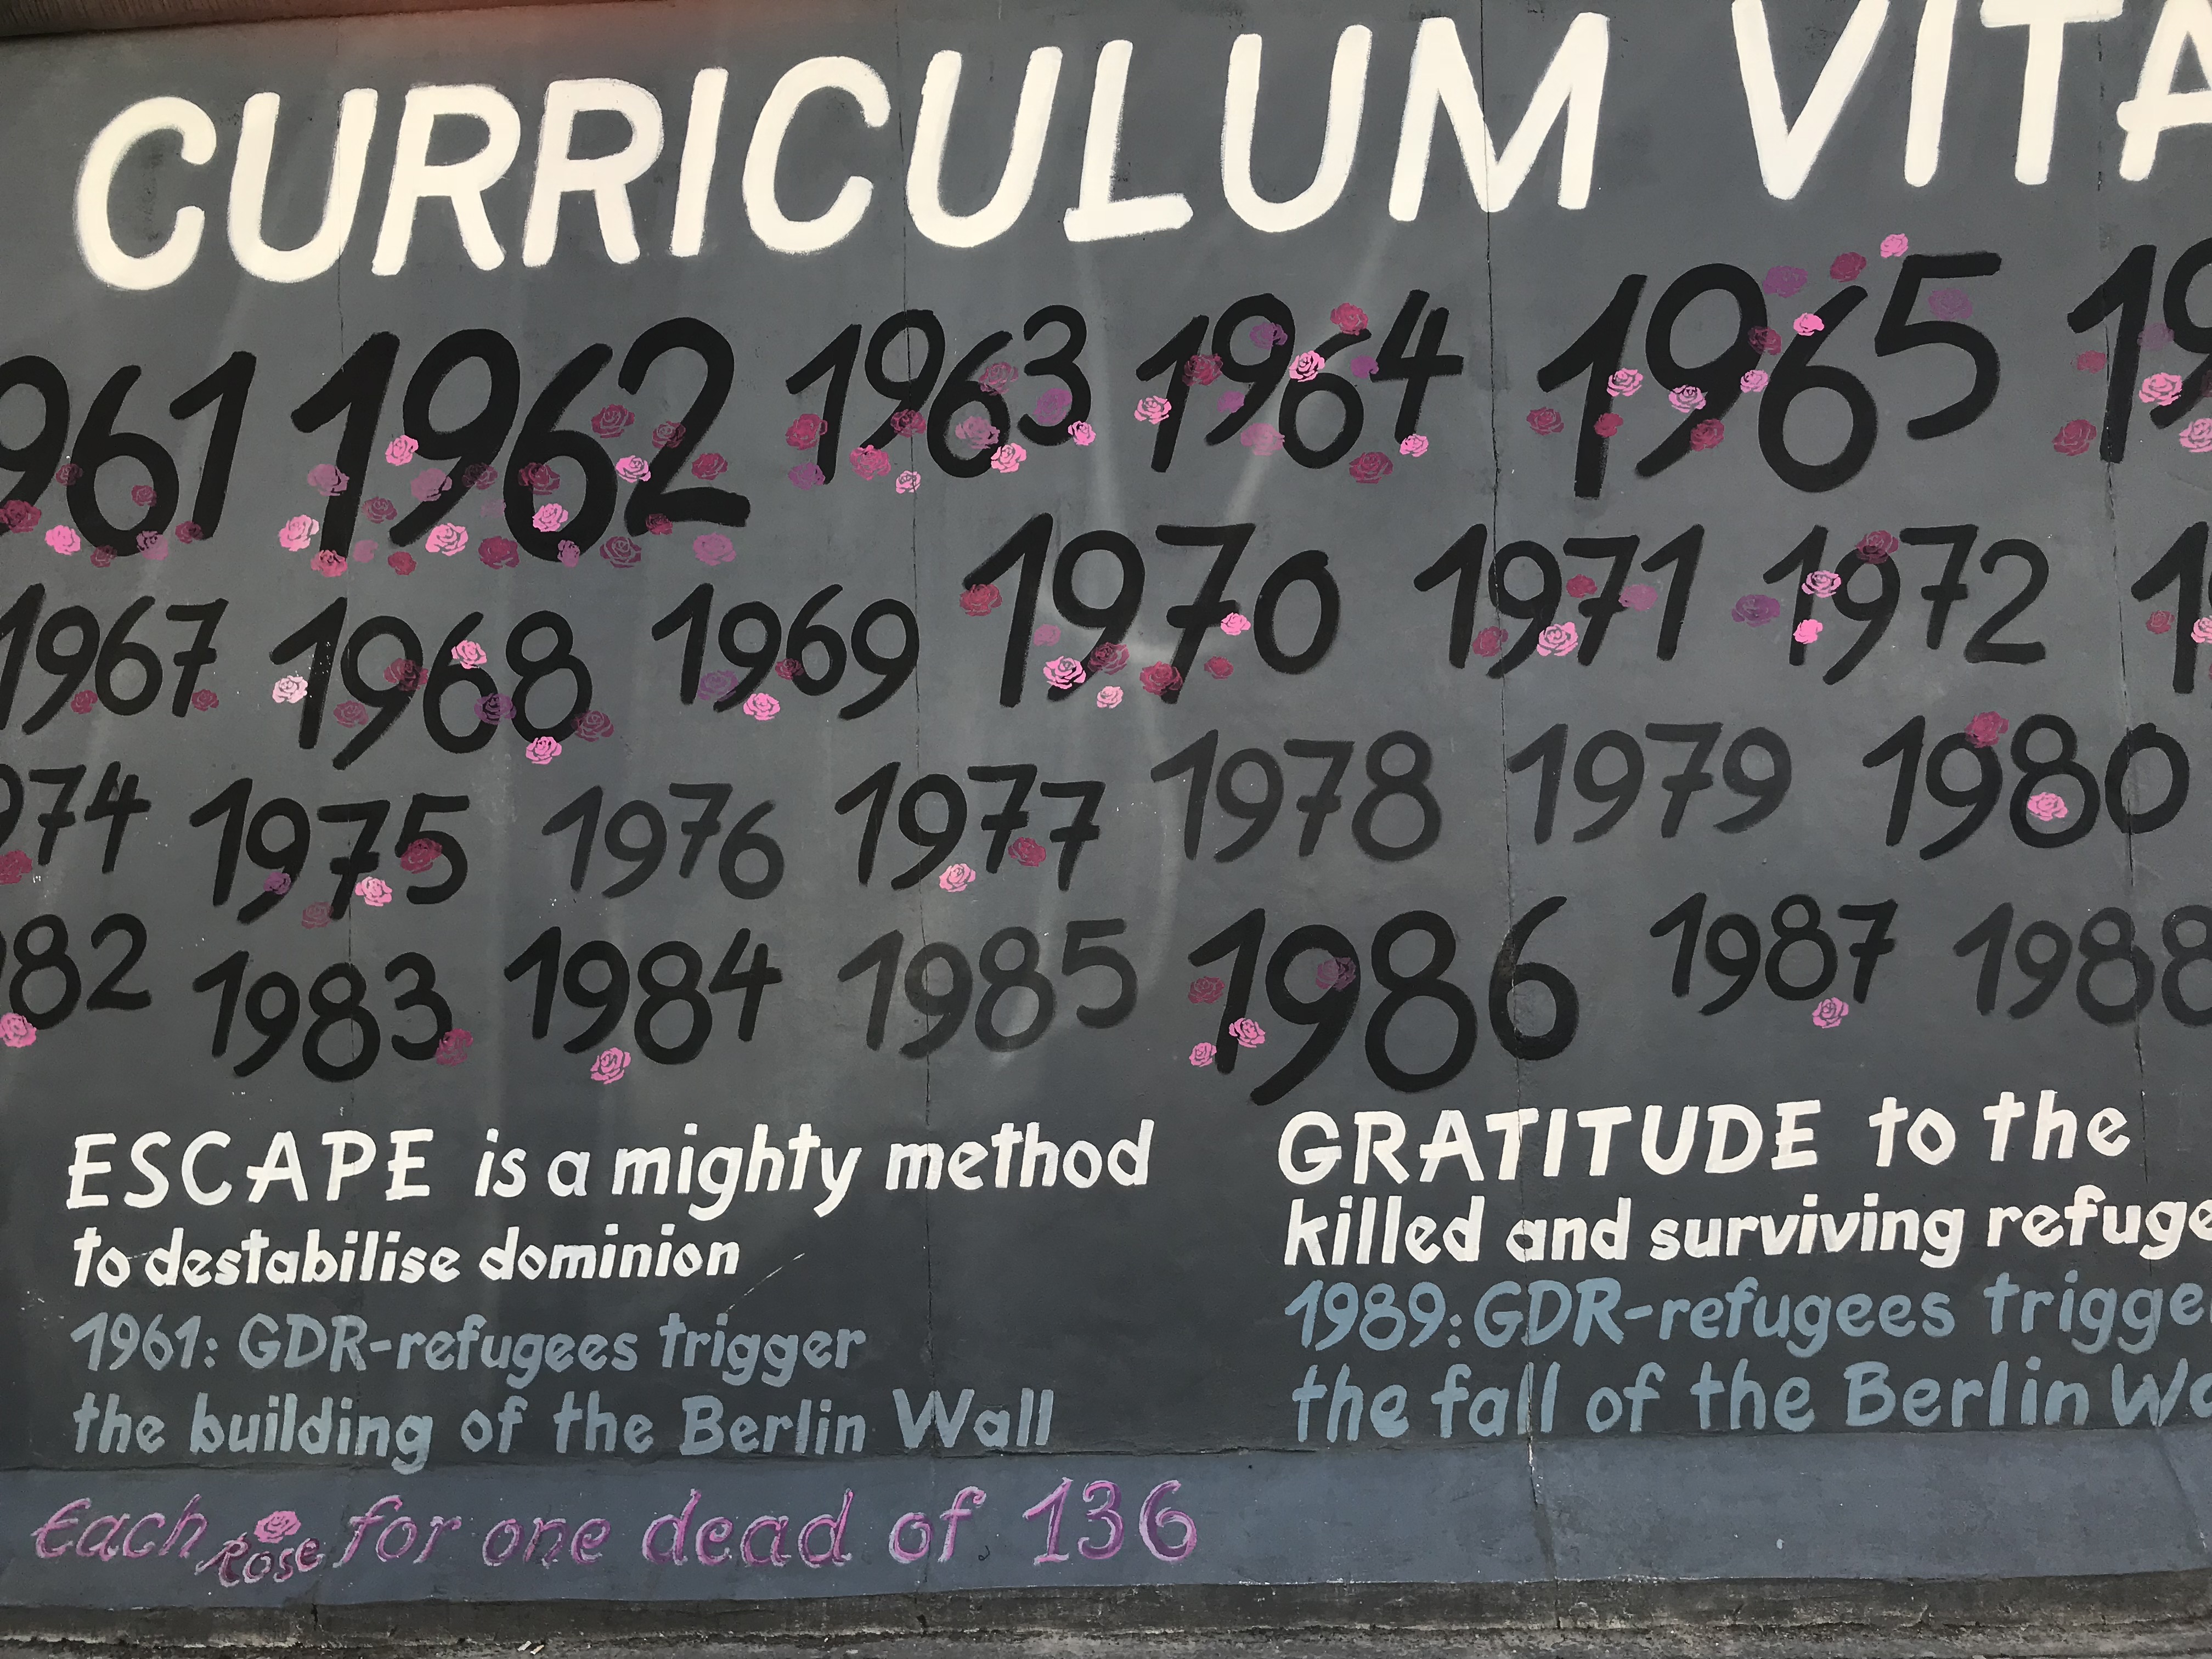 CURRICULUM VITA
961 1962 1963 1964 1965 19
1967 1968 1969 1970 1971 1972 1
974 1975 1976 1977 1978 1979 1980
82 1983 1984 1985 1986 1987 1988
ESCAPE is a mighty method
to destabilise dominion
1961: GDR-refugees trigger
the building of the Berlin Wall
GRATITUDE to the
killed and surviving refuge
1989: GDR-refugees trigge
the fall of the Berlin Wa
Each Rose for one dead of 136